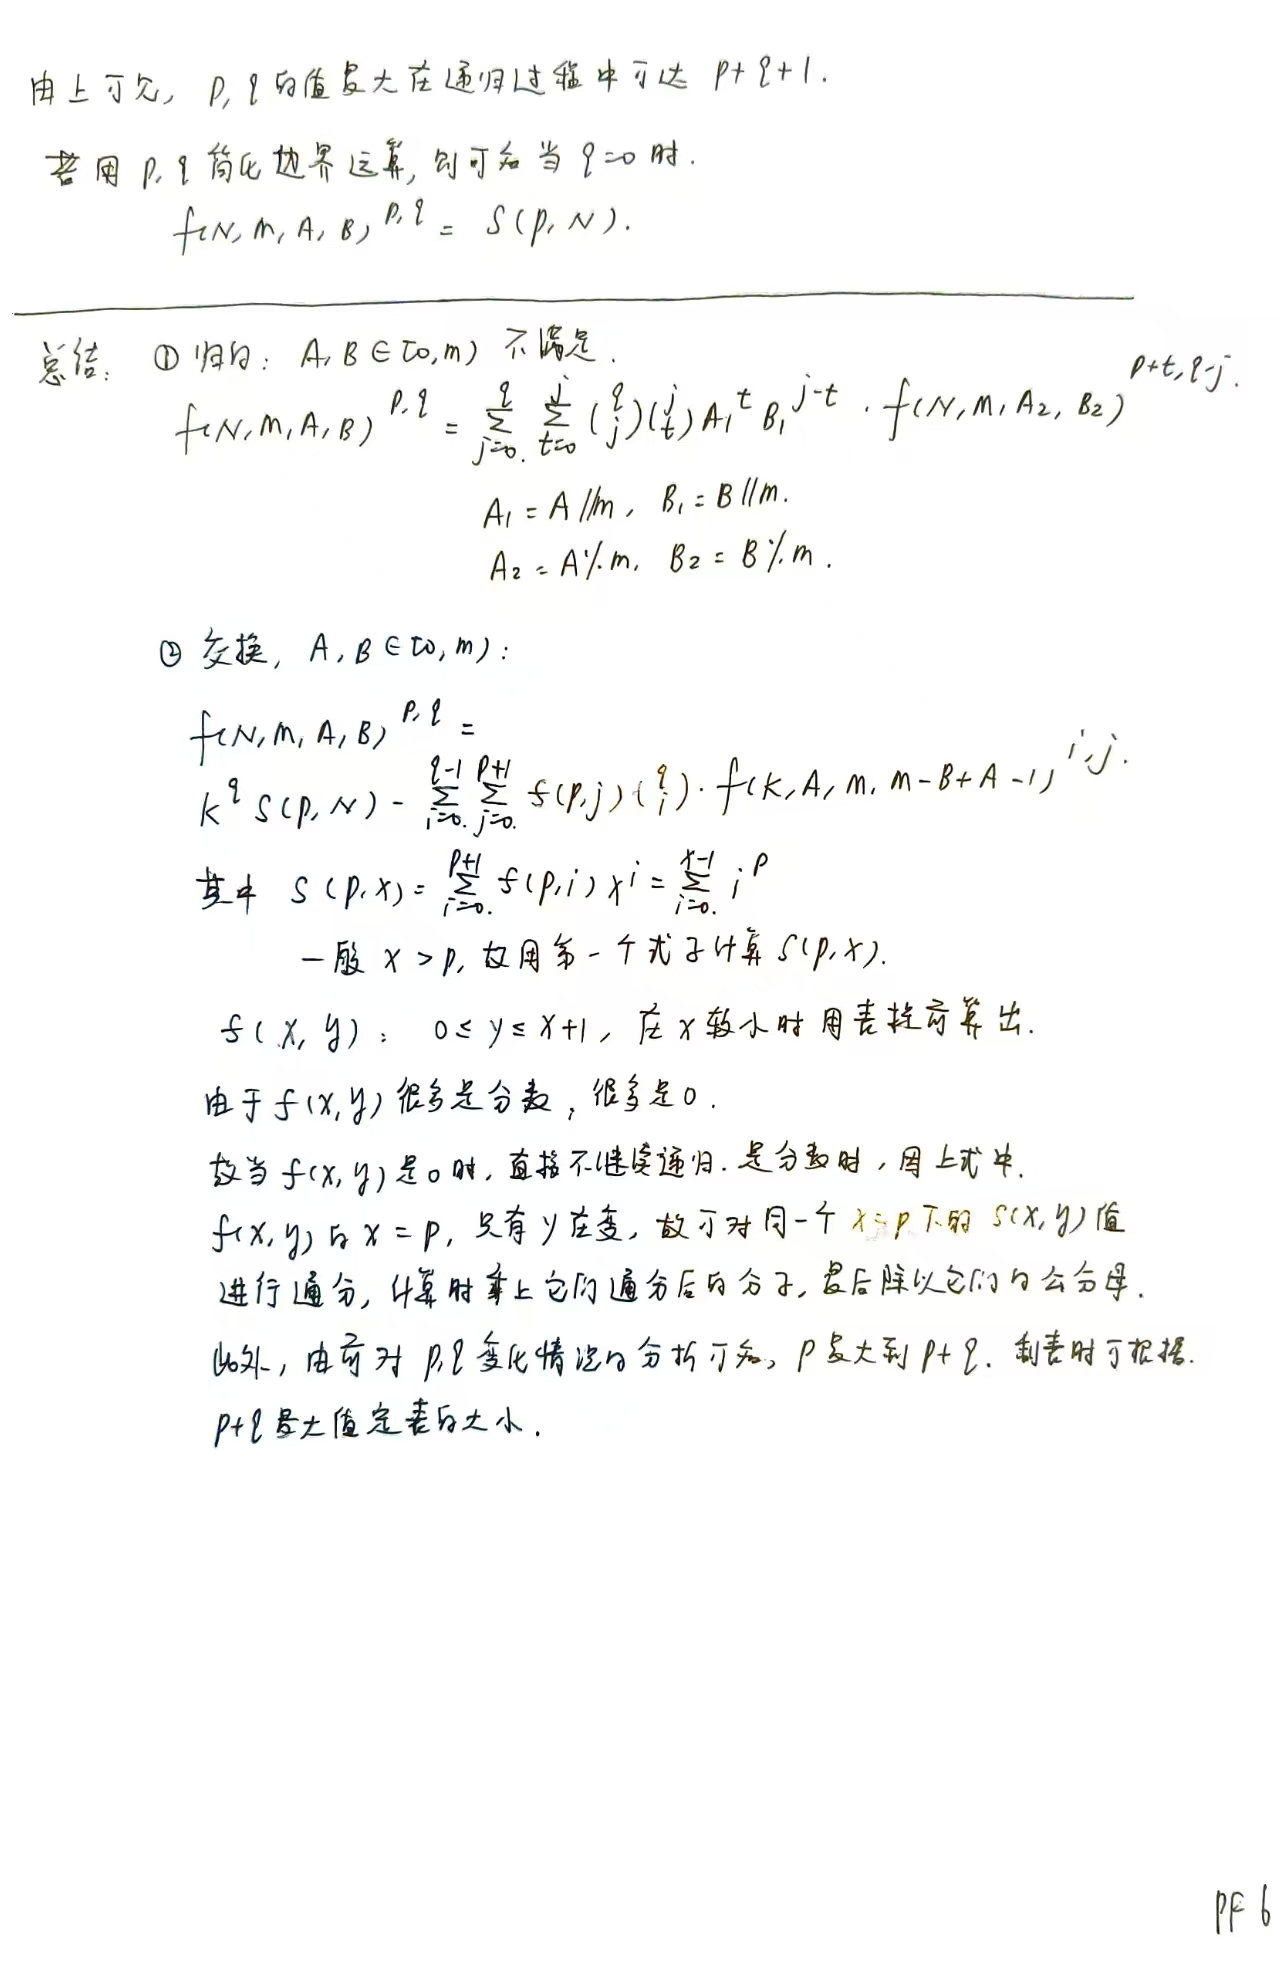 由上可知, p, q的值最大在递归过程中可达 p+q+1.
若用 p,q 简化边界运算, 则可知当 q=0 时.
f(N, m, A, B)^{p,q} = S(p, N).
总结: ① 归约: A, B ∈ [0, m) 不满足.
f(N, m, A, B)^{p,q} = \sum_{j=0}^{q} \sum_{t=0}^{j} \binom{q}{j} \binom{j}{t} A_1^t B_1^{j-t} · f(N, m, A_2, B_2)^{p+t, q-j}.
A_1 = A//m, B_1 = B//m.
A_2 = A%m, B_2 = B%m.
② 交换, A, B ∈ [0, m):
f(N, m, A, B)^{p,q} =
K^q S(p, N) - \sum_{i=0}^{q-1} \sum_{j=0}^{p+1} f(p,j) \binom{q}{i} · f(K, A, m, m-B+A-1)^{i,j}.
其中 S(p, x) = \sum_{i=0}^{p+1} f(p,i) x^i = \sum_{i=0}^{x-1} i^p
一般 x > p, 故用第一个式子计算 S(p, x).
f(x, y): 0 ≤ y ≤ x+1, 在 x 较小时用表提前算出.
由于 f(x, y) 很多是分数, 很多是0.
故当 f(x, y) 是0时, 直接不继续递归. 是分数时, 因上式中.
f(x, y) 的 x = p, 只有 y 在变, 故可对同一个 x=p 下的 S(x, y) 值
进行通分, 计算时乘上它们通分后的分子, 最后除以它们的公分母.
此外, 由前对 p,q 变化情况的分析可知, p 最大到 p+q. 制表时可根据.
p+q 最大值定表的大小.
6